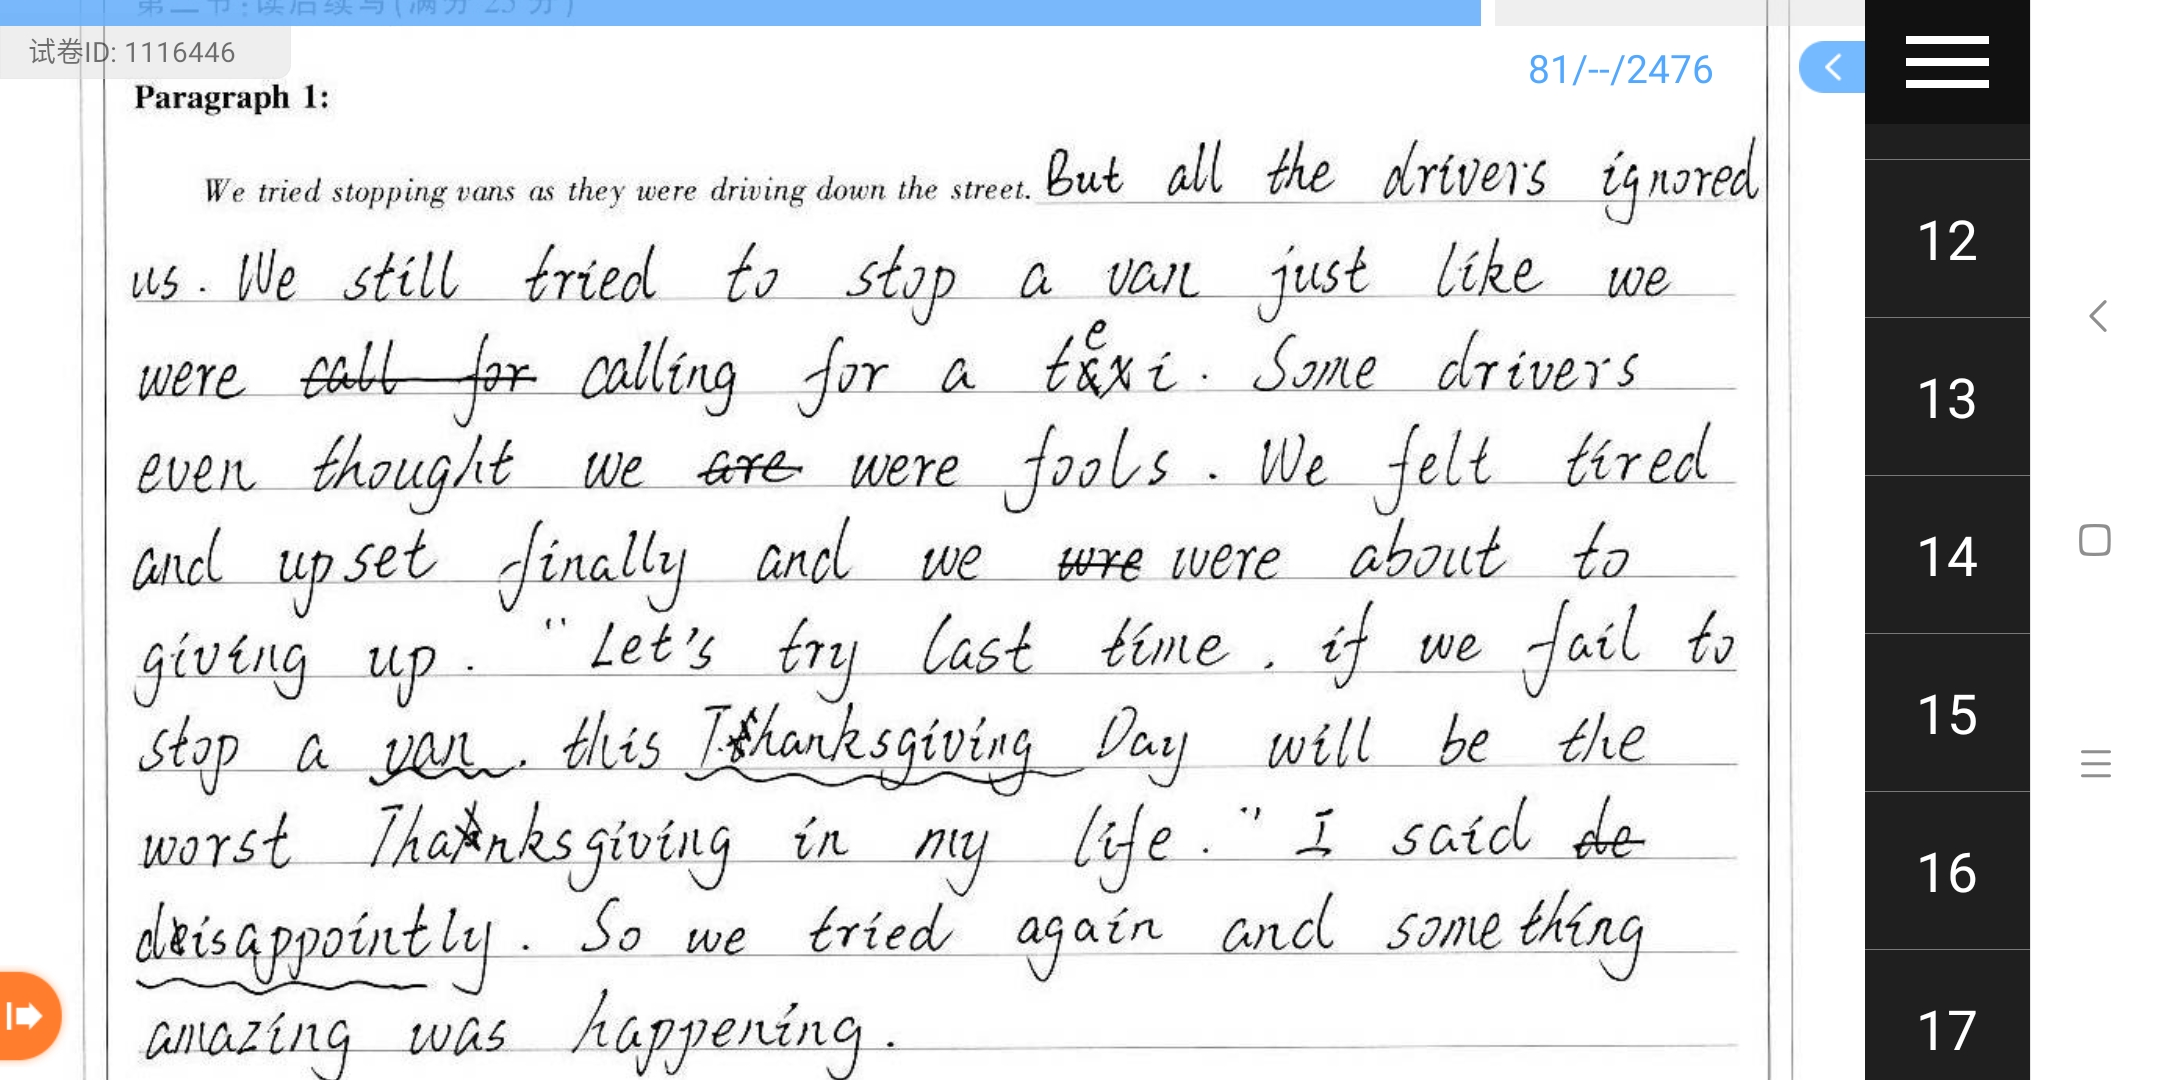 第二节:读后续写(满分 25 分)
试卷ID: 1116446
81/--/2476
Paragraph 1:
We tried stopping vans as they were driving down the street. But all the drivers ignored
us. We still tried to stop a van just like we
were call for calling for a texi. Some drivers
even thought we are were fools. We felt tired
and upset finally and we wre were about to
giving up. "Let's try last time, if we fail to
stop a van, this Thanksgiving Day will be the
worst Thanksgiving in my life." I said de
disappointly. So we tried again and something
amazing was happening.
12
13
14
15
16
17